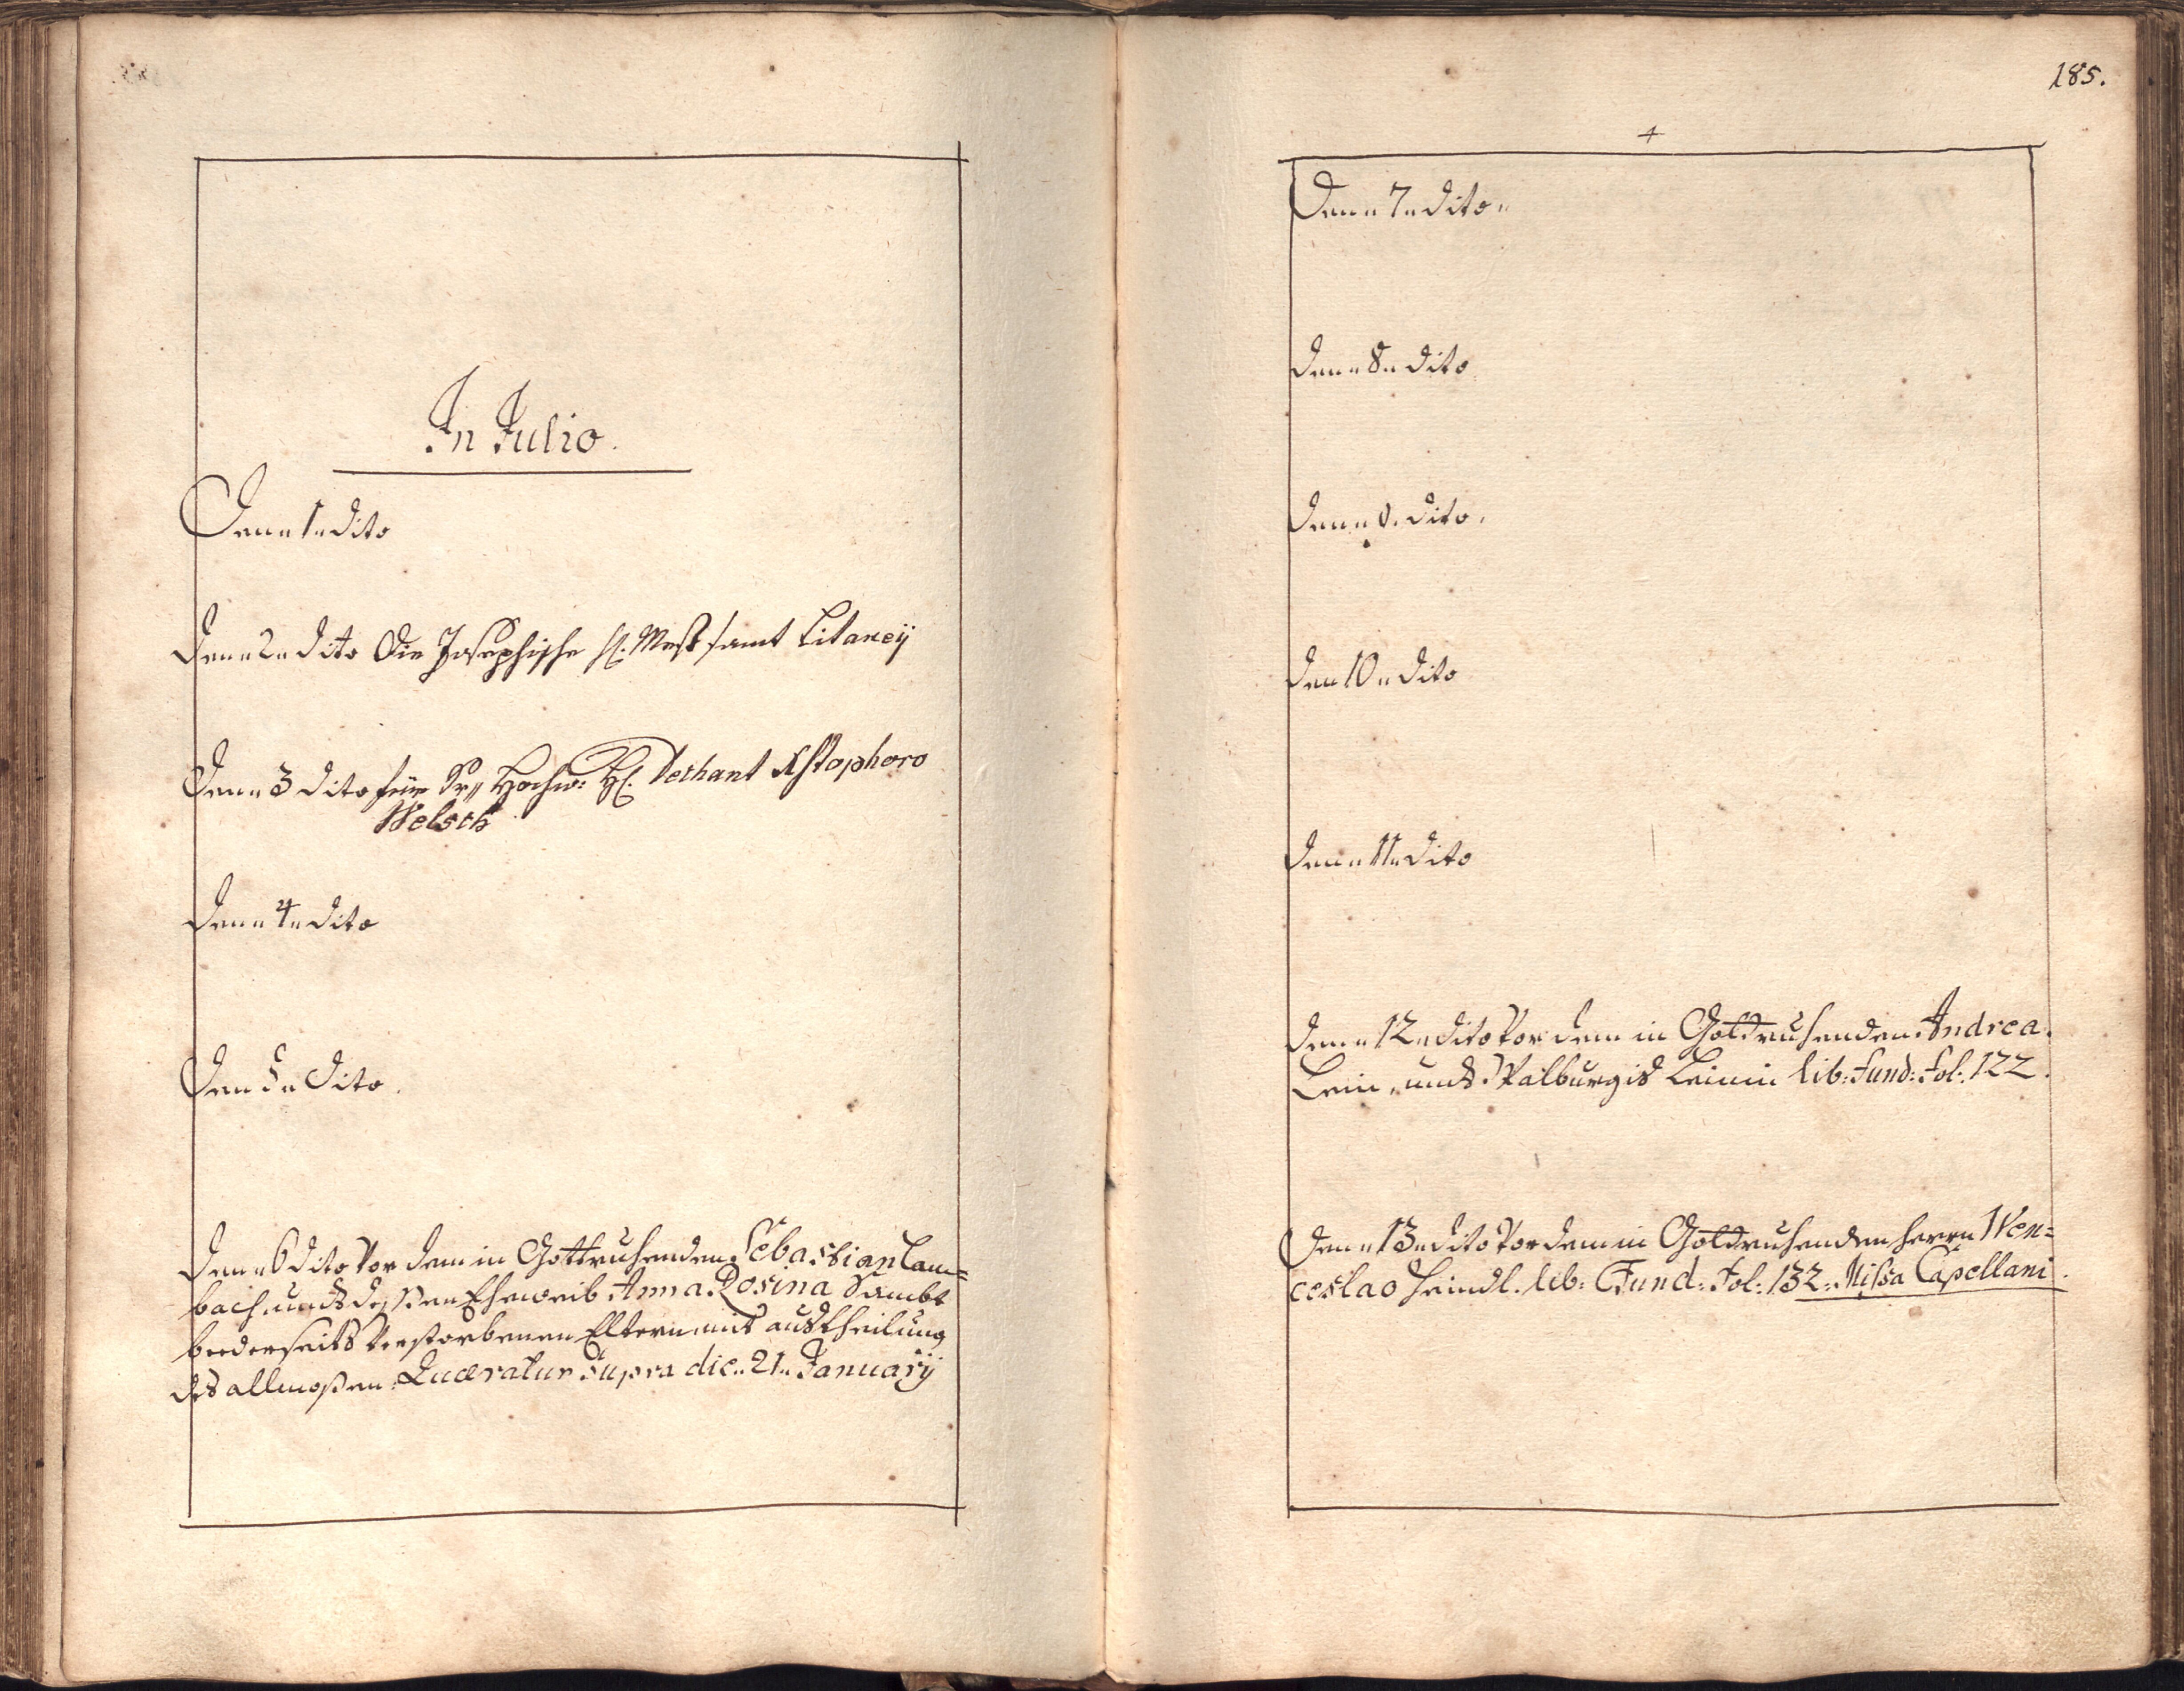 In Julio.
Den „1„ dito
Den „2„ dito Die Josephische H. Mess samt Litaneÿ
Den „3 dito für Sr„ Hochw: H. Dechant Xstophoro
Welsch
Den „4„ dito
Den 5„ dito.
Den „6 dito Vor dem in Gott ruhenden Sebastian Lam=
bach, undt dessen Eheweib Anna Rosina Sambt
beederseits Verstorbenen Eltern, mit austheilung
des allmosen: Quæratur supra die„ 21„ Januarÿ
185.
Den „7„ dito„
Den „8„ dito
Den „9. dito.
Den 10„ dito
Den „11„ dito
Den „12„ dito Vor dem in Gott ruhenden Andrea
Lein, undt Walburgis Leinin lib: Fund: Fol: 122.
Den „13„ dito Vor dem in Gott ruhenden Herrn Wen=
ceslao Heindl. lib: Fund: Fol: 132: Missa Capellani.